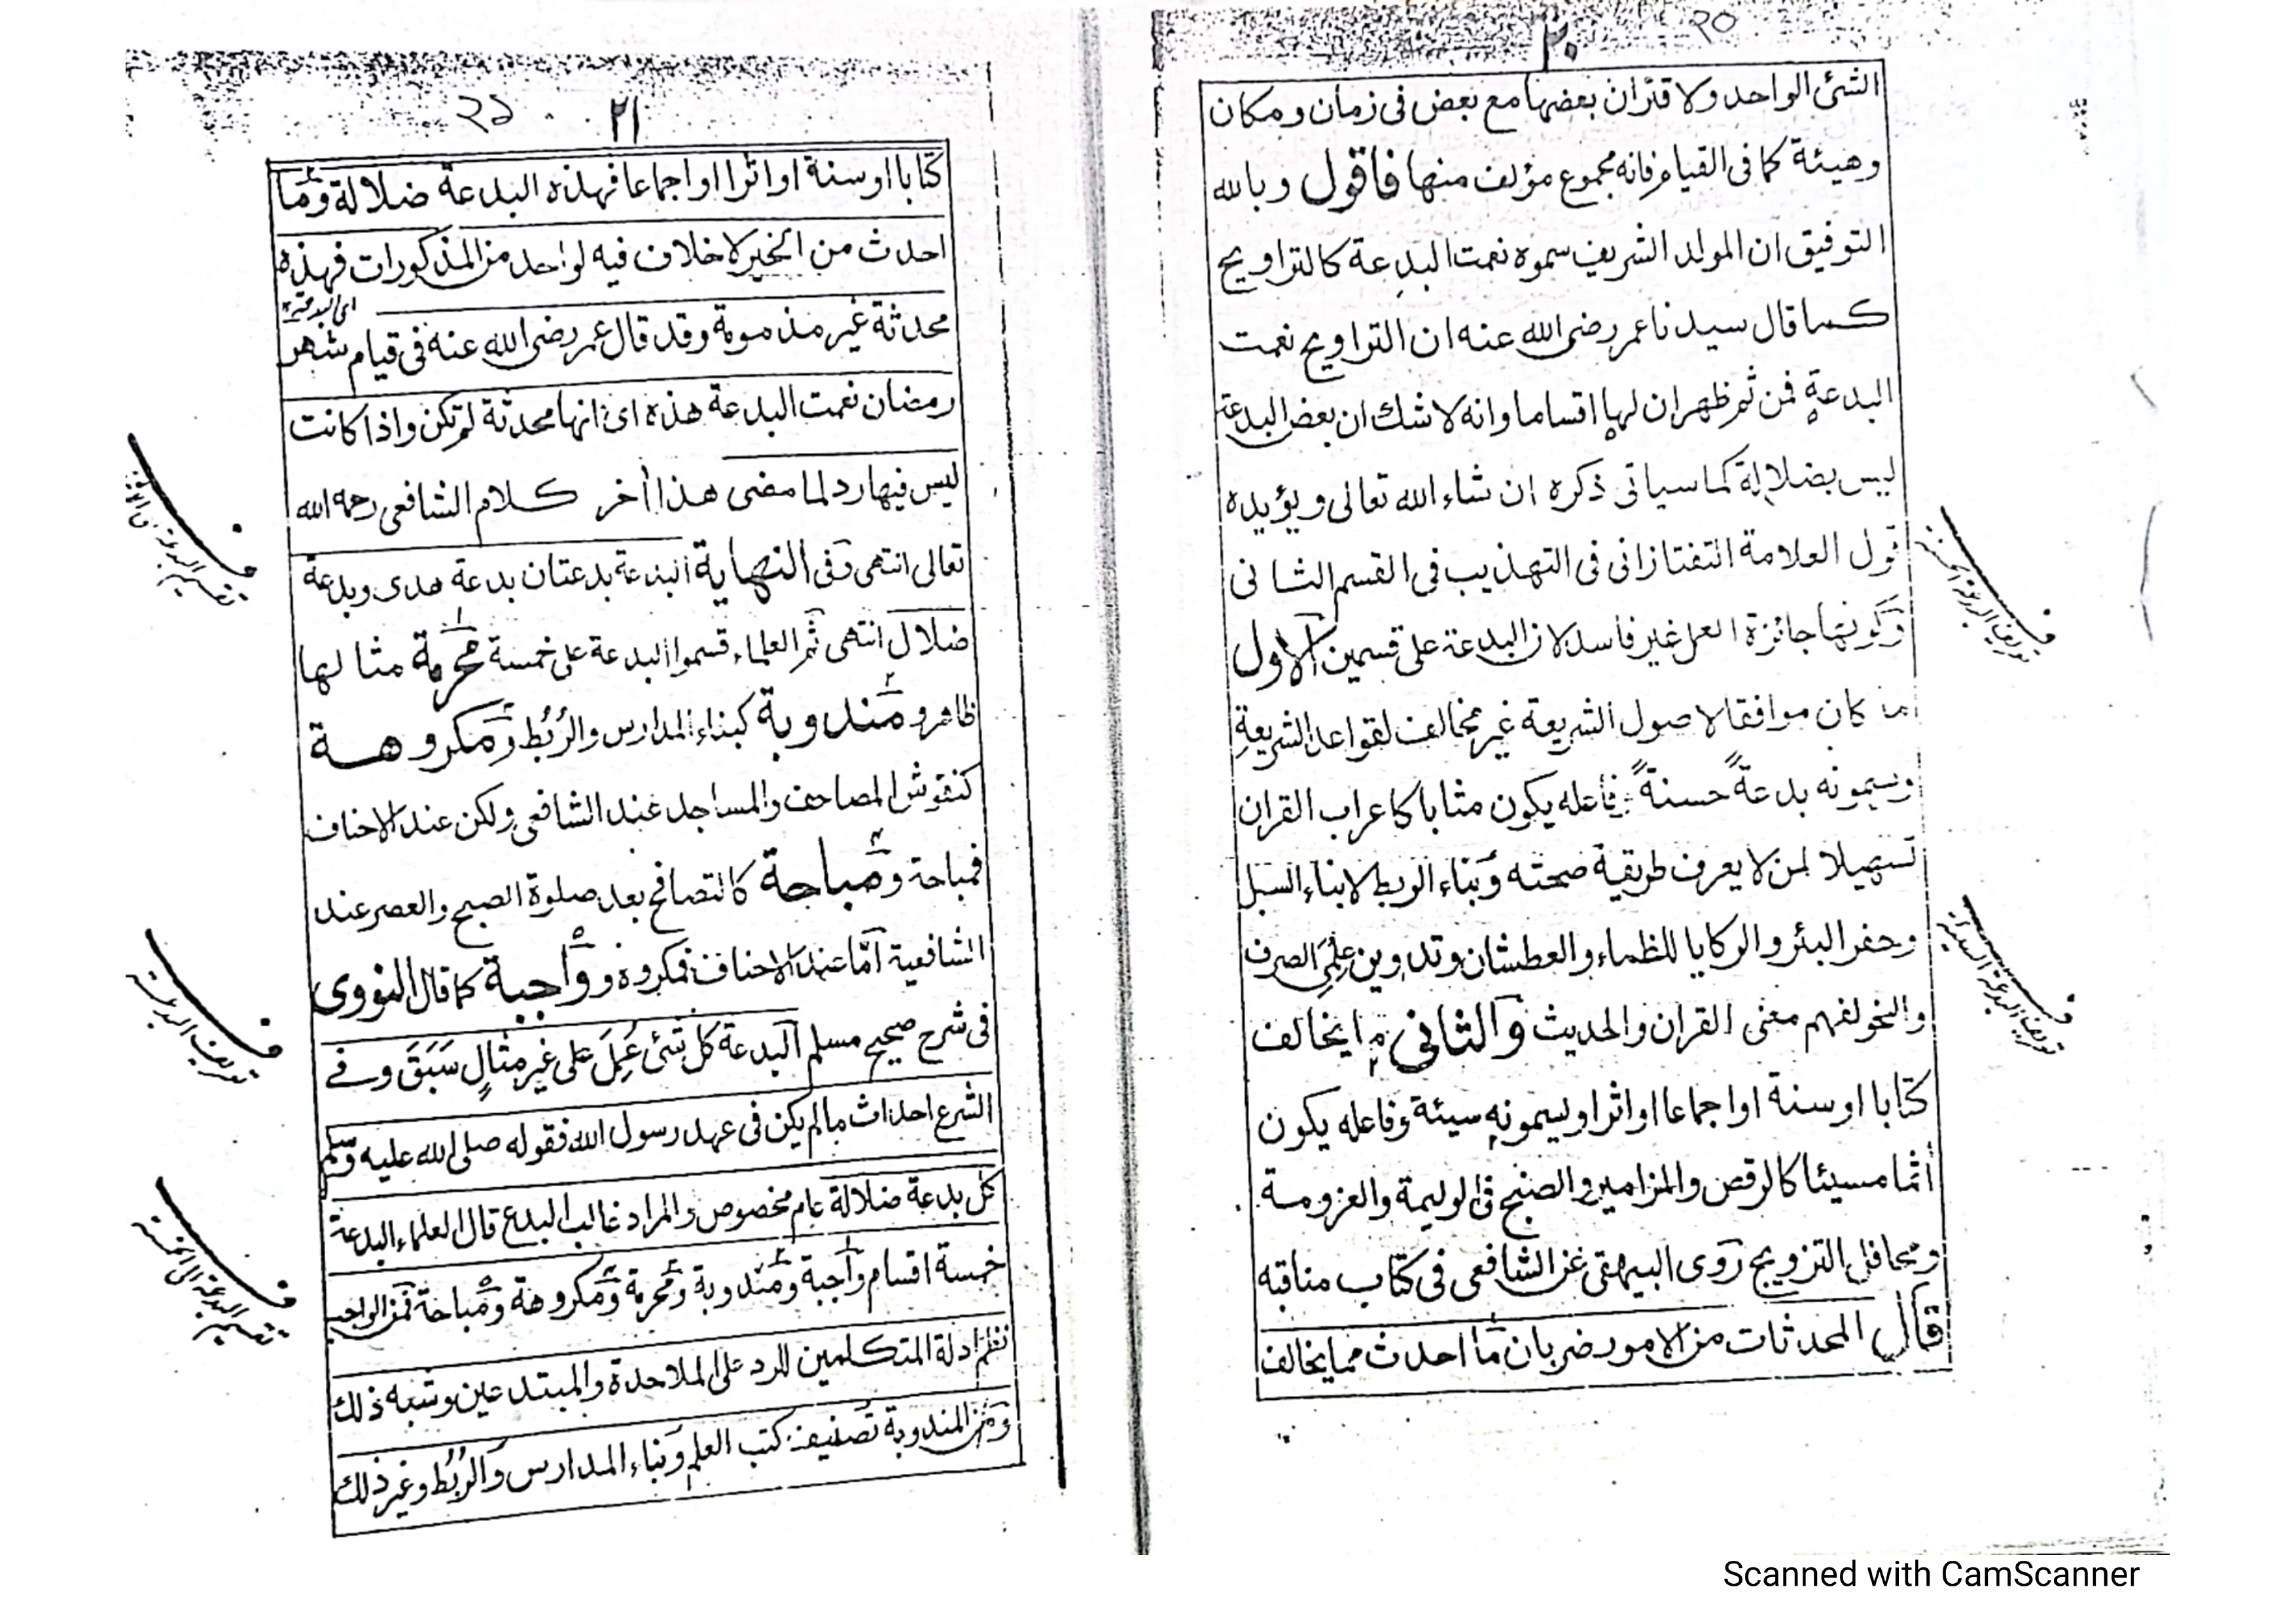 ٢٠
२०
الشئ الواحد ولاقتران بعضها مع بعض فى زمان ومكان
وهيئة كما فى القيام فانه مجموع مؤلف منها فاقول وبالله
التوفيق ان المولد الشريف سموه نعمت البدعة كالتراويح
كما قال سيدنا عمر رضى الله عنه ان التراويح نعمت
البدعة فمن ثم ظهر ان لها اقساما وانه لا شك ان بعض البدعة
ليس بضلالة كما سياتى ذكره ان شاء الله تعالى ويؤيده
قول العلامة التفتازانى فى التهذيب فى القسم الثانى
وكونها جائزة العمل غير فاسد لان البدعة على قسمين الاول
ما كان موافقا لاصول الشريعة غير مخالف لقواعد الشريعة
ويسمونه بدعةً حسنةً فاعله يكون مثابا كاعراب القران
تسهيلا لمن لا يعرف طريقة صحته وبناء الربط لابناء السبل
وحفر البئر والركايا للظماء والعطشان وتدوين علمى الصرف
والنحو لفهم معنى القران والحديث والثانى ما يخالف
كتابا او سنة او اجماعا او اثرا ويسمونه سيئة وفاعله يكون
أثما مسيئا كالرقص والمزامير والصنج فى الوليمة والعزومة
ومحافل التزويج روى البيهقى عن الشافعى فى كتاب مناقبه
قال المحدثات من الامور ضربان ما احدث مما يخالف
تعريف البدعة الحسنة
تعريف البدعة السيئة
٢١
२१
كتابا او سنة او اثرا او اجماعا فهذه البدعة ضلالة وما
احدث من الخير لا خلاف فيه لواحد من المذكورات فهذه
اى البدعة
محدثة غير مذمومة وقد قال عمر رضى الله عنه فى قيام شهر
رمضان نعمت البدعة هذه اى انها محدثة لم تكن واذا كانت
ليس فيها رد لما مضى هذا أخر كلام الشافعى رحمه الله
تعالى انتهى وفى النهاية البدعة بدعتان بدعة هدى وبدعة
ضلال انتهى ثم العلماء قسموا البدعة على خمسة محرمة مثالها
ظاهر ومندوبة كبناء المدارس والرُبُط ومكروهة
كنقوش المصاحف والمساجد عند الشافعى ولكن عند الاحناف
فمباحة ومباحة كالتصافح بعد صلوة الصبح والعصر عند
الشافعية امّا عند الاحناف فمكروه وواجبة كما قال النووى
فى شرح صحيح مسلم البدعة كل شئ عُمِلَ على غير مثالٍ سَبَقَ وفى
الشرع احداث مالم يكن فى عهد رسول الله فقوله صلى الله عليه وسلم
كل بدعة ضلالة عام مخصوص والمراد غالب البدع قال العلماء البدعة
خمسة اقسام واجبة ومندوبة ومحرمة ومكروهة ومباحة فمن الواجب
نظم ادلة المتكلمين للرد على الملاحدة والمبتدعين وشبه ذلك
ومن المندوبة تصنيف كتب العلم وبناء المدارس والرُبُط وغير ذلك
تعريف البدعة
Scanned with CamScanner